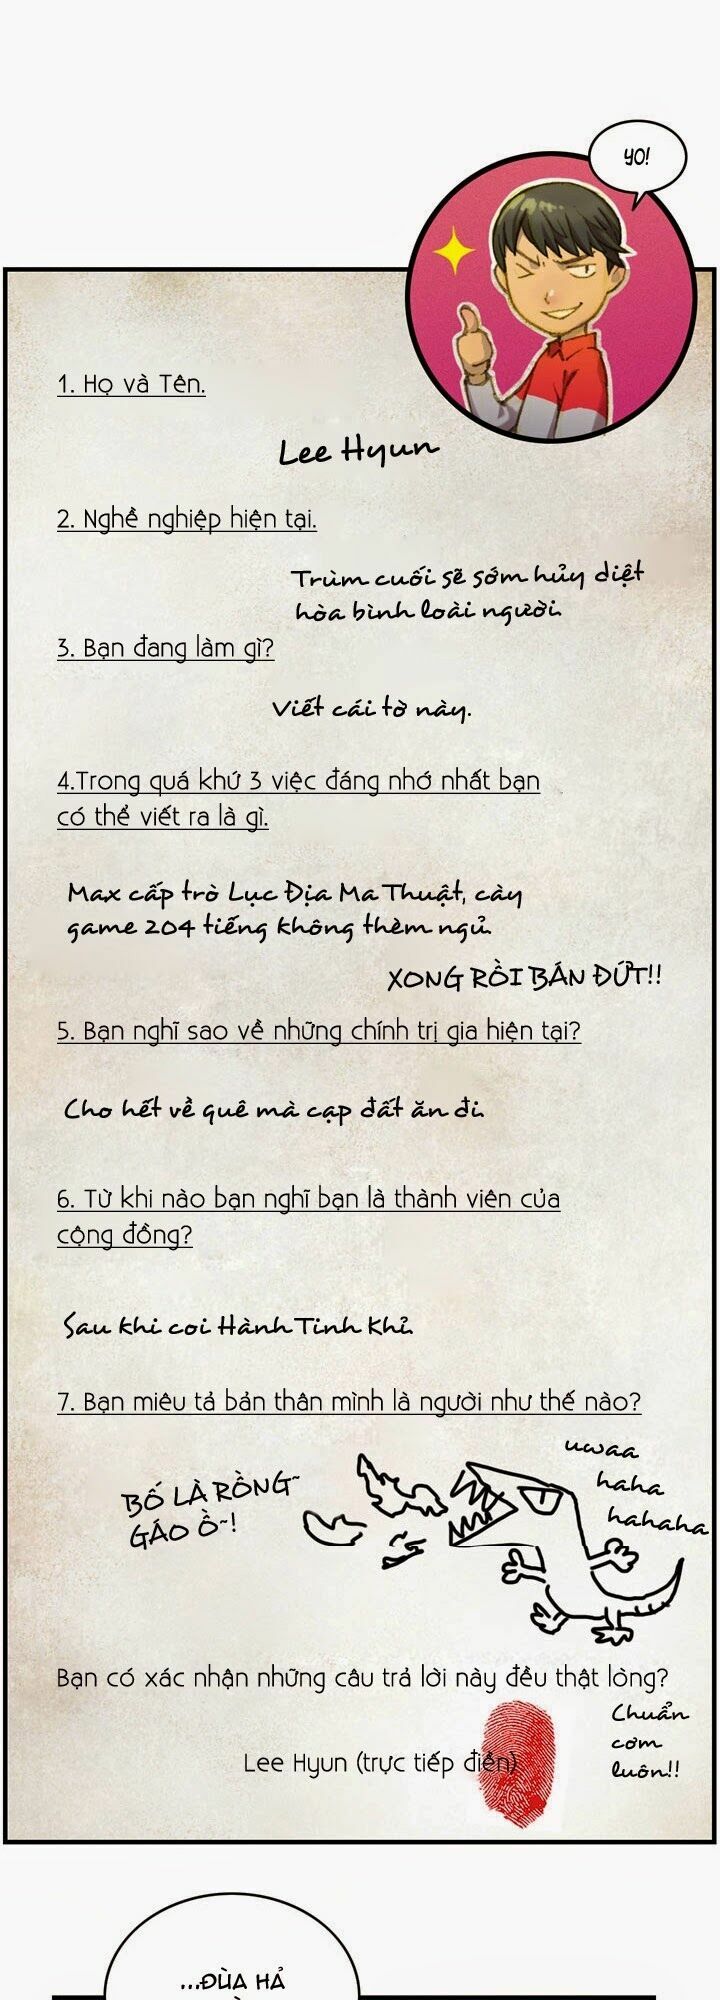 YO!
1. Họ và Tên.
Lee Hyun
2. Nghề nghiệp hiện tại.
Trùm cuối sẽ sớm hủy diệt
hòa bình loài người.
3. Bạn đang làm gì?
Viết cái tờ này.
4.Trong quá khứ 3 việc đáng nhớ nhất bạn
có thể viết ra là gì.
Max cấp trò Lục Địa Ma Thuật, cày
game 204 tiếng không thèm ngủ.
XONG RỒI BÁN ĐỨT!!
5. Bạn nghĩ sao về những chính trị gia hiện tại?
Cho hết về quê mà cạp đất ăn đi.
6. Từ khi nào bạn nghĩ bạn là thành viên của
cộng đồng?
Sau khi coi Hành Tinh Khỉ.
7. Bạn miêu tả bản thân mình là người như thế nào?
BỐ LÀ RỒNG~
GÁO Ồ~!
uwaa
haha
hahaha
Bạn có xác nhận những câu trả lời này đều thật lòng?
Lee Hyun (trực tiếp điền)
Chuẩn
cơm
luôn!!
...ĐÙA HẢ